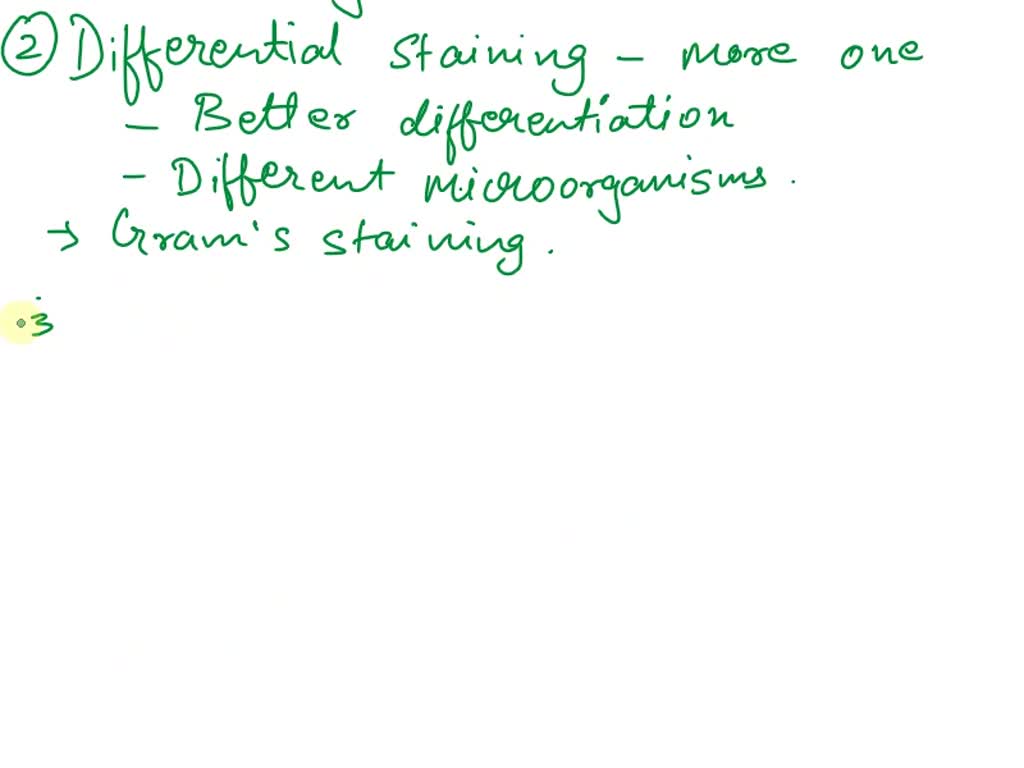 ② Differential staining - more one
- Better differentiation
- Different microorganisms.
→ Gram's staining.